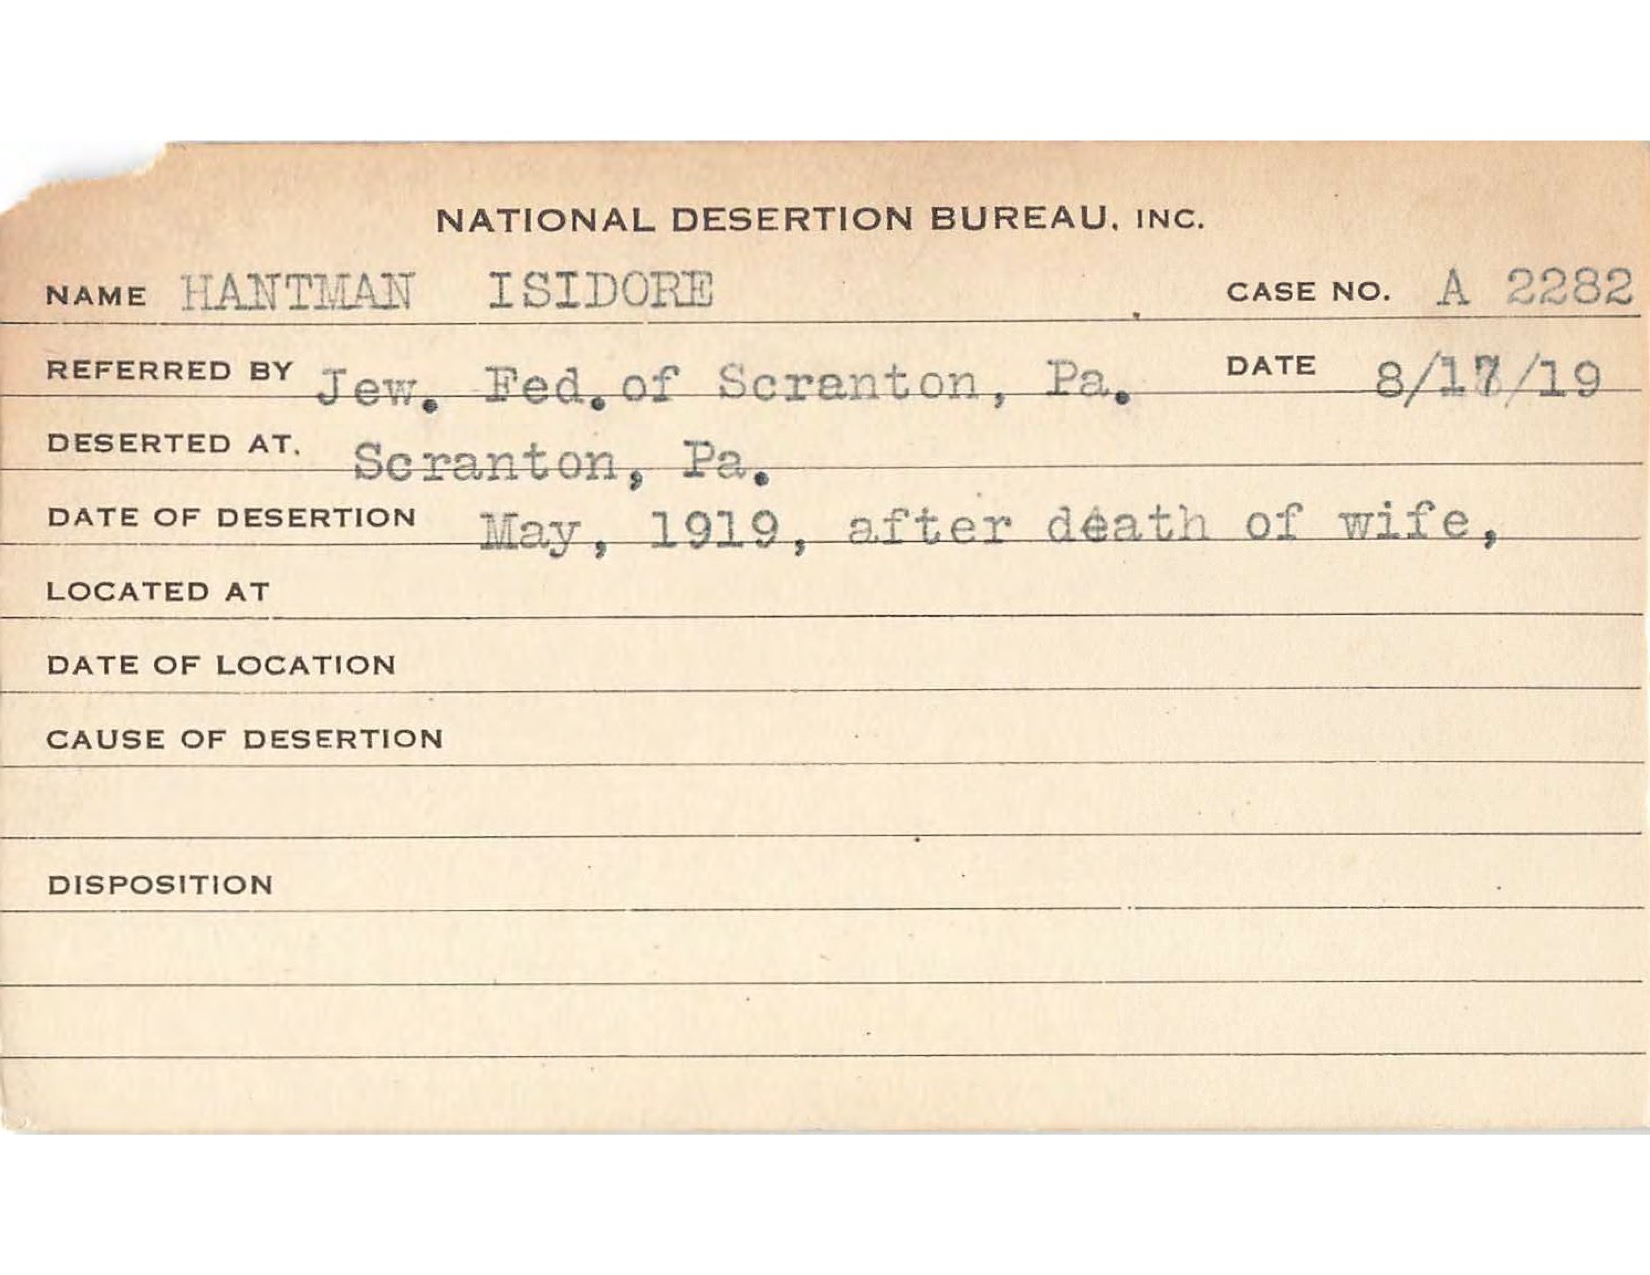 NATIONAL DESERTION BUREAU, INC.
NAME HANTMAN ISIDORE CASE NO. A 2282
REFERRED BY Jew. Fed. of Scranton, Pa. DATE 8/17/19
DESERTED AT. Scranton, Pa.
DATE OF DESERTION May, 1919, after death of wife,
LOCATED AT
DATE OF LOCATION
CAUSE OF DESERTION
DISPOSITION